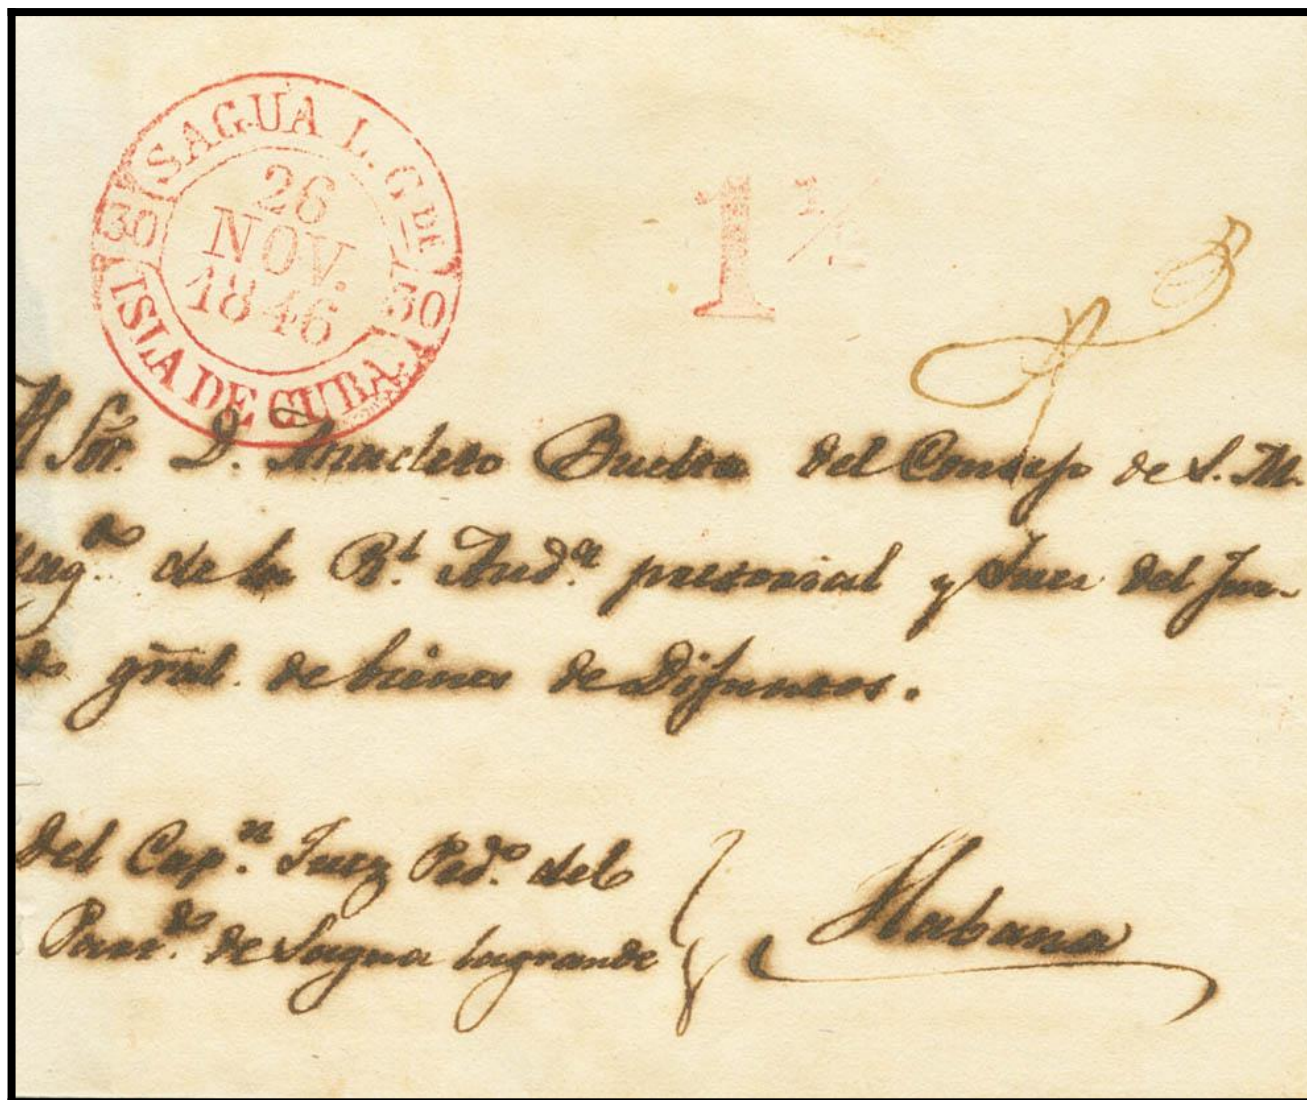 SAGUA L. GDE
30 30
26
NOV.
1846
ISLA DE CUBA.
1 1/2
Sōr. D. Anacleto Buelta del Consejo de S. M.
de la Rl. Auda. pretorial y Juez del Juz-
gral. de bienes de Difuntos.
Del Capn. Juez Pedo. del
Partdo. de Sagua lagrande
Habana